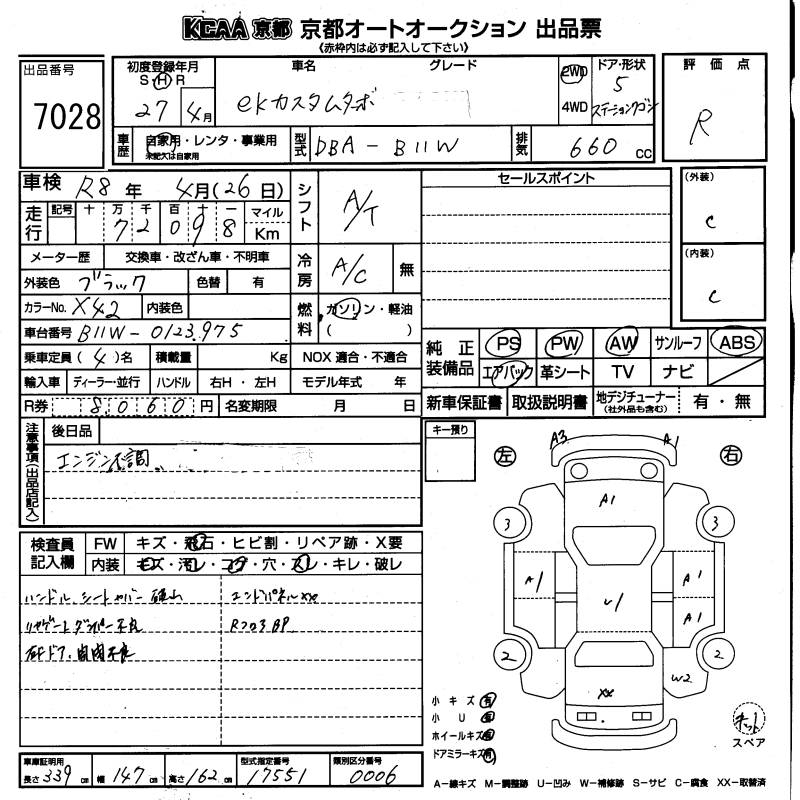 KCAA 京都 京都オートオークション 出品票
《赤枠内は必ず記入して下さい》
出品番号
7028
初度登録年月
S・H・R
27 4月
車名 グレード
eKカスタムターボ
2WD
4WD
ドア・形状
5
ステーションワゴン
評価点
R
車歴
自家用・レンタ・事業用
未記入は自家用
型式
DBA-B11W
排気
660 cc
車検 R8年 4月(26日)
走行
記号 十 万 千 百 十 一
7 2 0 9 8
マイル
Km
シフト
A/T
セールスポイント
(外装)
C
(内装)
C
メーター歴 交換車・改ざん車・不明車
冷房
A/C 無
外装色 ブラック 色替 有
カラーNo. X42 内装色
燃料
ガソリン・軽油
( )
車台番号 B11W-0123975
乗車定員 (4)名 積載量 Kg NOX 適合・不適合
輸入車 ディーラー・並行 ハンドル 右H・左H モデル年式 年
R券 8060円 名変期限 月 日
純正装備品
PS PW AW サンルーフ ABS
エアバック 革シート TV ナビ
新車保証書 取扱説明書 地デジチューナー(社外品も含む) 有・無
注意事項(出品店記入)
後日品
エンジン不調
キー預り
左 右
A3 A1
A1
3 3
A1 U1 A1
A1
2 2
XX W2
検査員記入欄
FW キズ・飛石・ヒビ割・リペア跡・X要
内装 キズ・汚レ・コゲ・穴・スレ・キレ・破レ
ハンドル シートカバー
エンドパネルXX
リヤゲートダンパー不良
小キズ 有
小U 有
ホイールキズ 有
ドアミラーキズ 有
スペア
車庫証明用
長さ 339cm 幅 147cm 高さ 162cm
型式指定番号
17551
類別区分番号
0006
A-線キズ M-調整跡 U-凹み W-補修跡 S-サビ C-腐食 XX-取替済